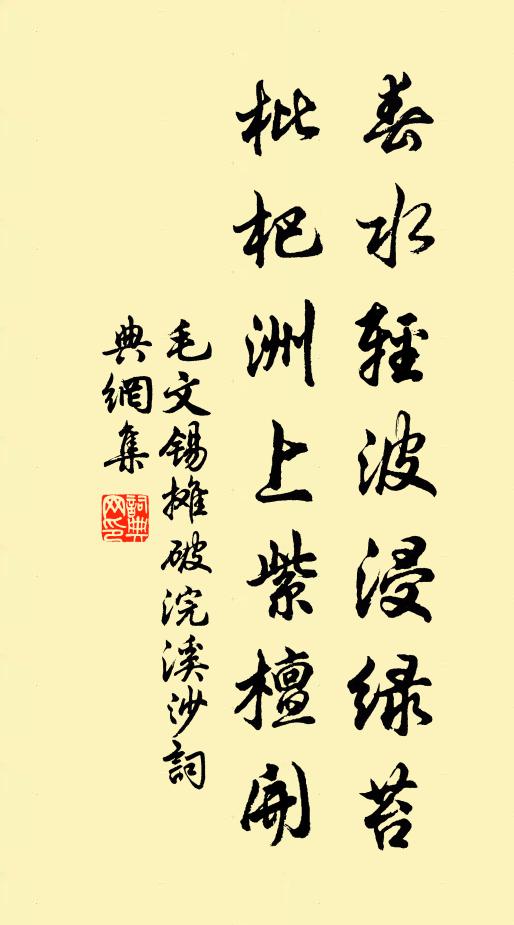 春水輕波浸绿苔
枇杷洲上紫檀開
毛文锡摊破浣溪沙詞
典網集
詞典
网印